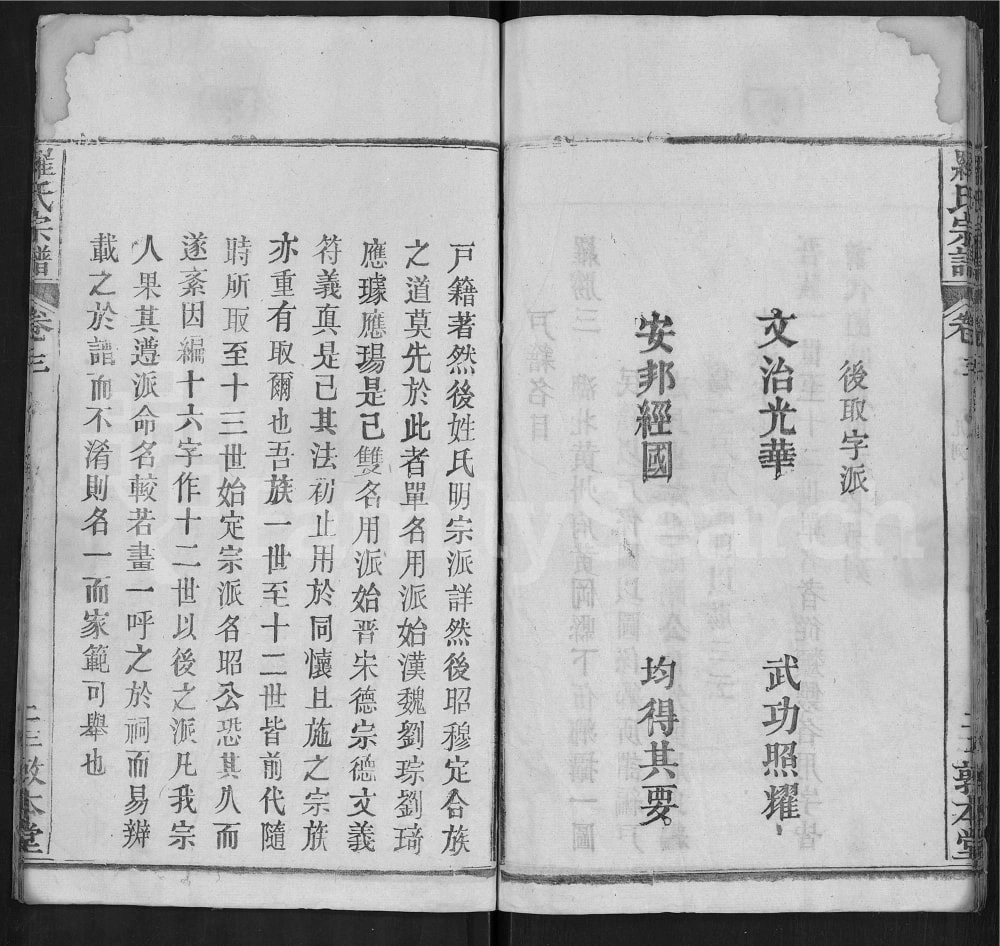 羅氏宗譜
卷三
敦本堂
後取字派
文治光華 武功照耀
安邦經國 均得其要
戸籍著然後姓氏明宗派詳然後昭穆定合族
之道莫先於此者單名用派始漢魏劉琮劉琦
應璩應瑒是已雙名用派始晋宋德宗德文義
符義真是已其法初止用於同懷且施之宗族
亦重有取爾也吾族一世至十二世皆前代隨
時所取至十三世始定宗派名昭公恐其久而
遂紊因編十六字作十二世以後之派凡我宗
人果其遵派命名較若畫一呼之於祠而易辨
載之於譜而不淆則名一而家範可舉也
羅氏宗譜
卷三
敦本堂